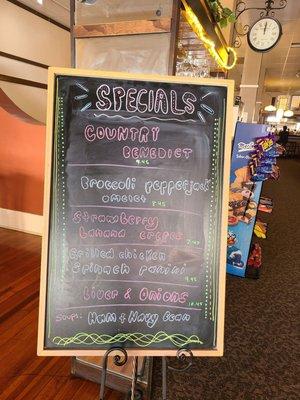 SPECIALS
COUNTRY
BENEDICT
9.45
Broccoli pepperjack
omelet
7.45
Strawberry
Banana crepes
7.45
Grilled chicken
Spinach panini
9.45
Liver & Onions
10.45
Soup: Ham + Navy Bean